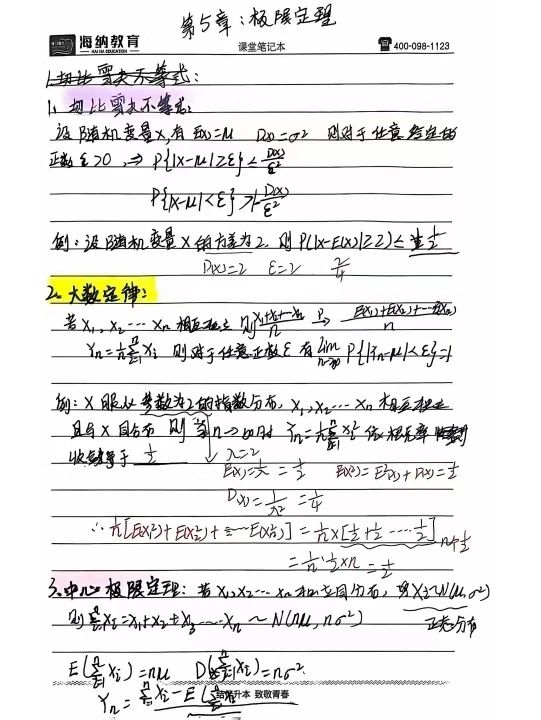 第5章：极限定理
海纳教育
HAI NA EDUCATION
课堂笔记本
400-098-1123
1.切比雪夫不等式：
1、切比雪夫不等式：
设随机变量X，有 E(X)=μ D(X)=σ² 则对于任意给定的
正数ε>0，⇒ P{|X-μ|≥ε} ≤ D(X)/ε²
P{|X-μ|<ε} ≥1- D(X)/ε²
例：设随机变量X的方差为2，则 P(|X-E(X)|≥2) ≤ 1/2
D(X)=2 ε=2 2/4
2、大数定律：
若X₁，X₂…Xn 相互独立 则 (X₁+X₂+…Xn)/n →P (E(X₁)+E(X₂)+…E(Xn))/n
Yn=1/n ∑Xi 则对于任意正数ε 有 lim n→∞ P{|Yn-μ|<ε}=1
例：X服从参数为2的指数分布，X₁，X₂…Xn 相互独立
且与X同分布 则当n→∞时 Yn=1/n ∑Xi² 依概率
收敛于 1/2
λ=2
E(X)=1/λ=1/2 E(X²)=E²(X)+D(X)=1/2
D(X)=1/λ²=1/4
∴ 1/n[E(X₁²)+E(X₂²)+…E(Xn²)] = 1/n×[1/2+1/2…1/2] n个1/2
=1/n·1/2×n=1/2
3、中心极限定理：若X₁，X₂…Xn 独立同分布，Xi~N(μ,σ²)
则 ∑Xi=X₁+X₂+X₃…Xn ~ N(nμ, nσ²) 正态分布
E(∑Xi)=nμ D(∑Xi)=nσ²
专升本 致敬青春
Yn= ∑Xi-E(∑Xi)